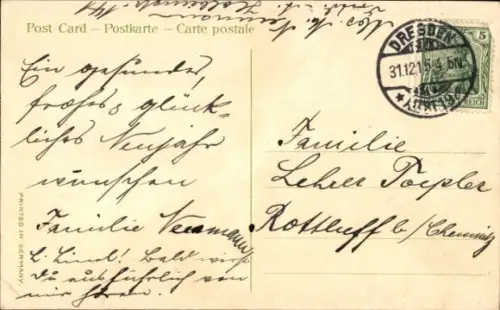 Post Card – Postkarte – Carte postale
DRESDEN
31.12.15
5
REICH
Ein gesundes,
frohes & glück-
liches Neujahr
wünschen
Familie Neumann
L. Lind! Bald wirst
Du ausführlich von
mir hören.
Familie
Lehrer Toepler
Rottluff b/Chemnitz
PRINTED IN GERMANY